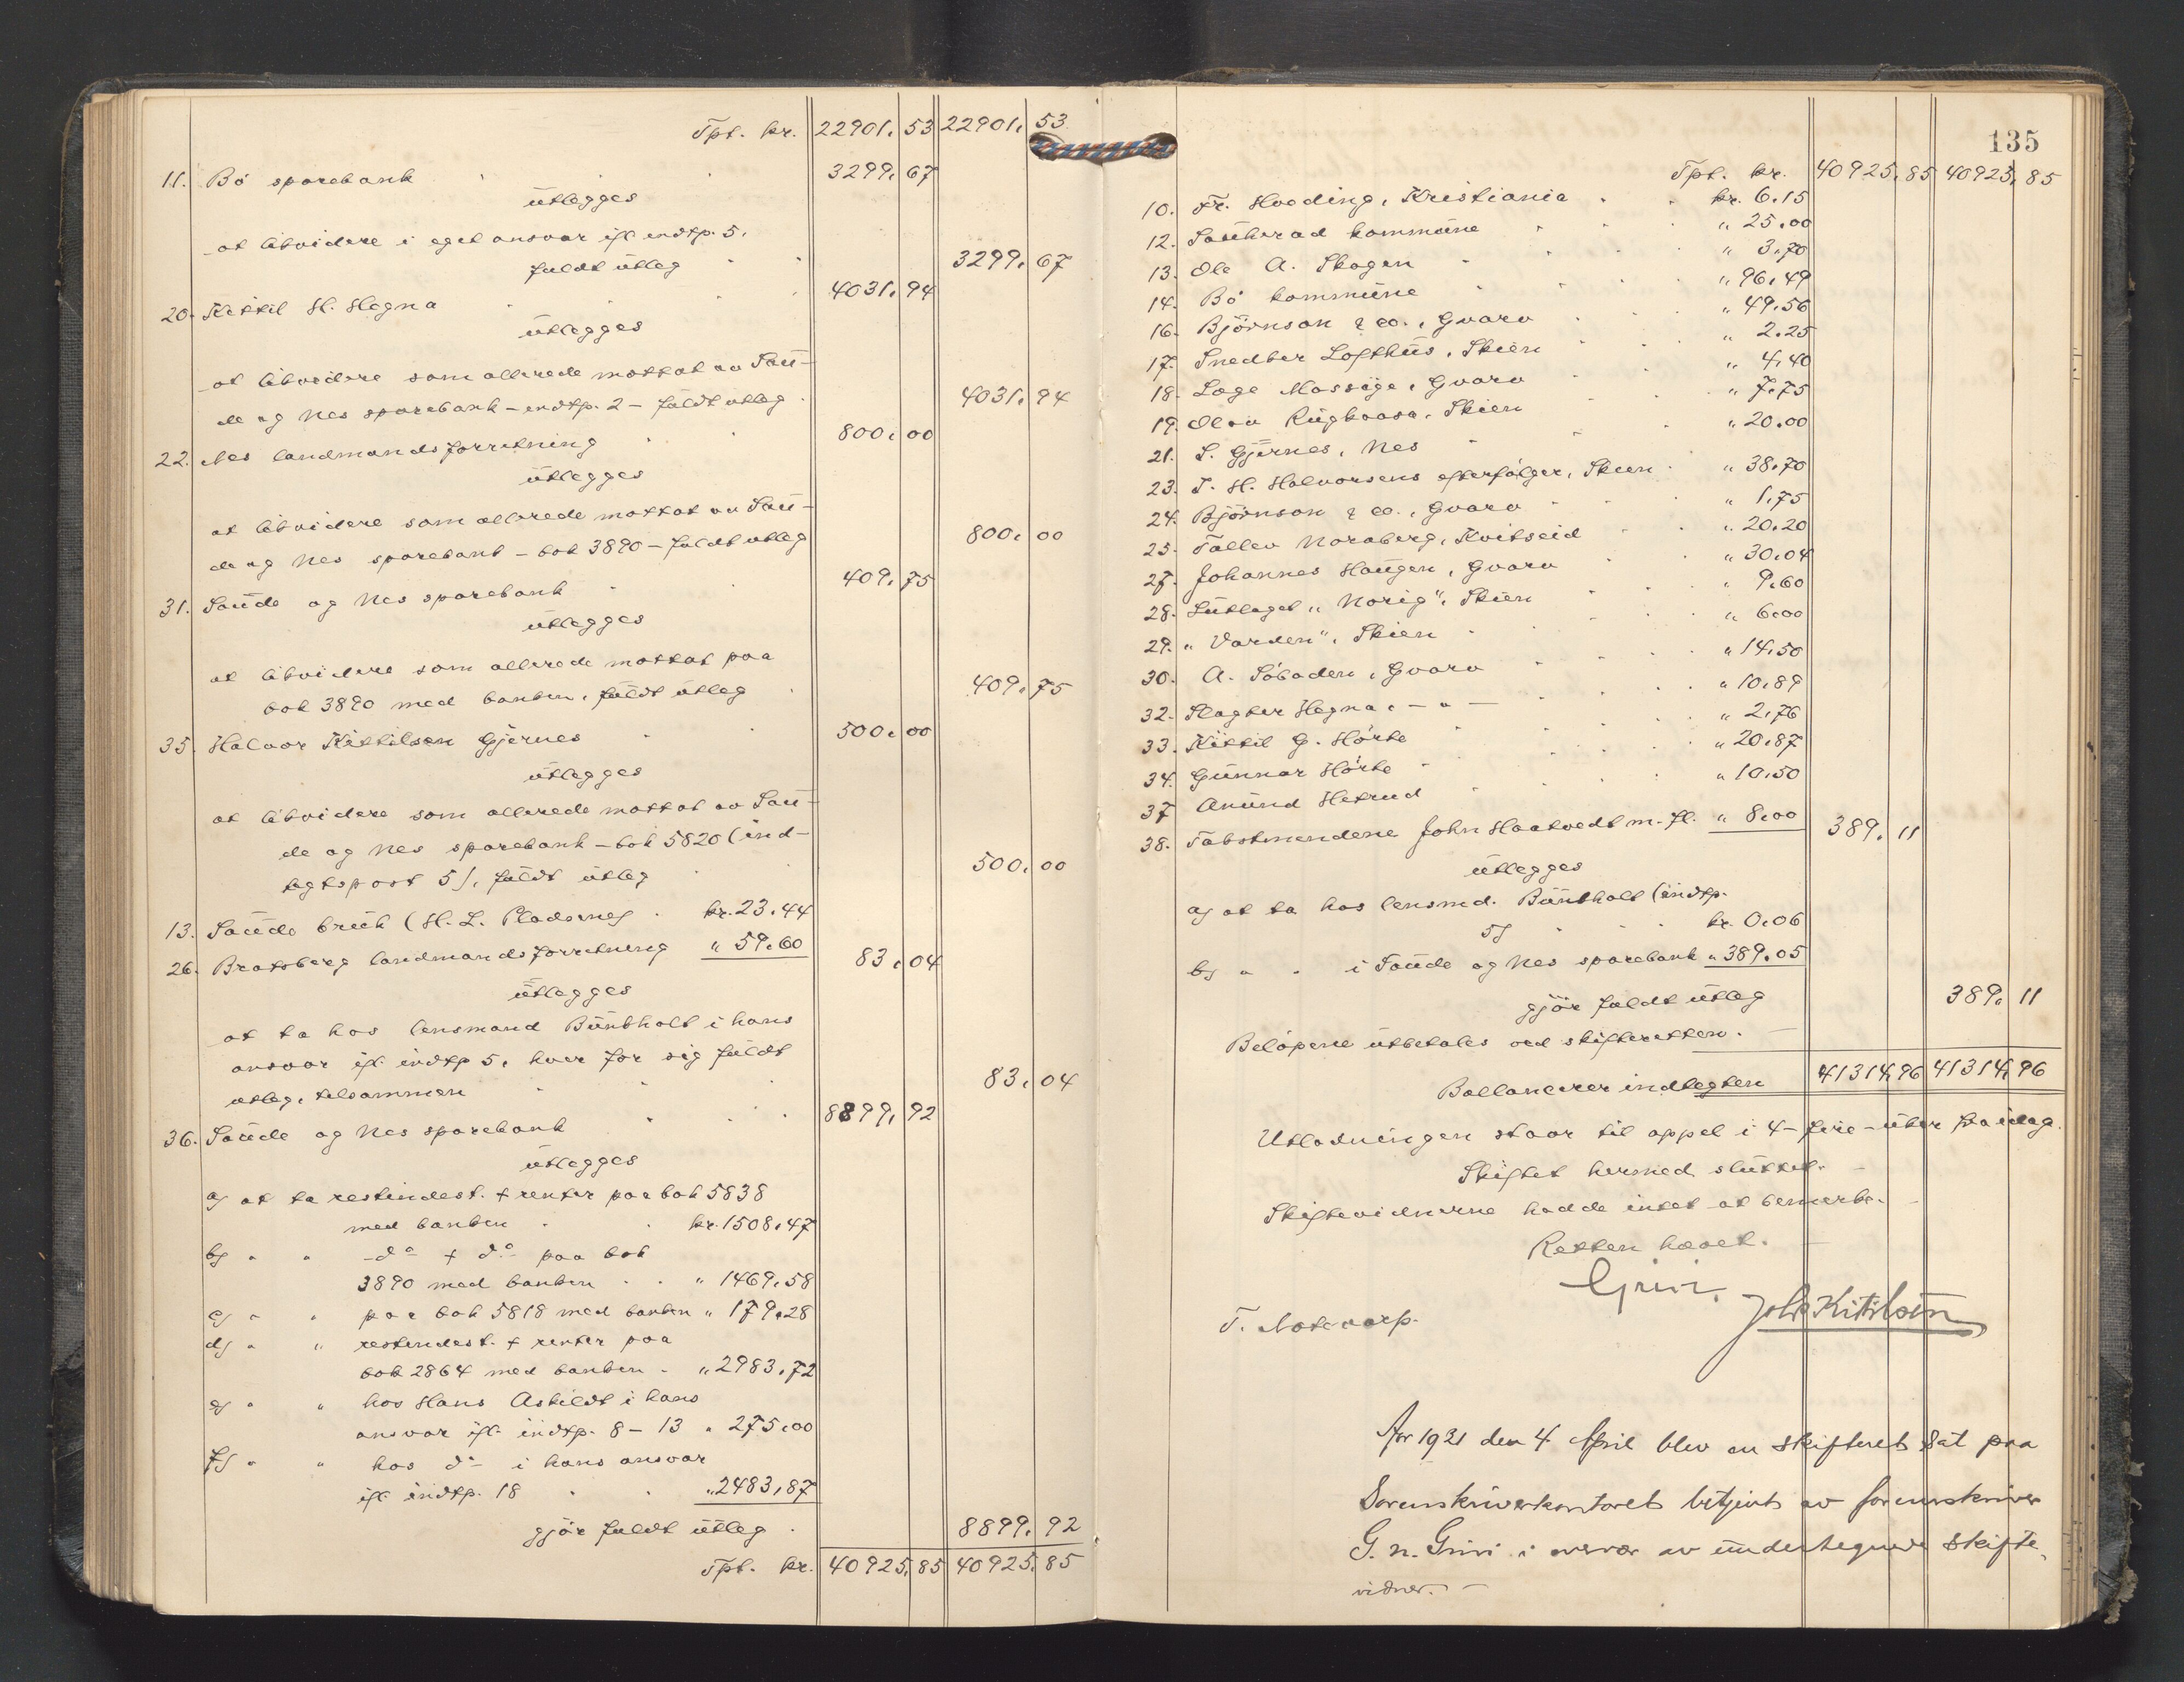 Tpt. kr. 22901. 53 22901. 53
11. Bö sparebank 3299. 67
utlegges
at likvidere i eget ansvar ifl. indtp. 5.
fuldt utlæg 3299. 67
20. Kittil H. Hegna 4031. 94
utlegges
at likvidere som allerede mottat av Sau-
de og Nes sparebank - indtp. 2 - fuldt utlæg 4031. 94
22. Nes landmandsforretning 800. 00
utlegges
at likvidere som allerede mottat av Sau-
de og Nes sparebank - bok 3890 - fuldt utlæg 800. 00
31. Saude og Nes sparebank 409. 75
utlegges
at likvidere som allerede mottat paa
bok 3890 med banken. fuldt utlæg 409. 75
35. Halvor Kittilsen Gjernes 500. 00
utlegges
at likvidere som allerede mottat av Sau-
de og Nes sparebank - bok 5820 (ind-
tegtspost 5). fuldt utlæg 500. 00
13. Saude bruk (H. L. kr. 23.44
26. Bratsberg landmandsforretning " 59.60 83. 04
utlegges
at ta hos lensmand Buntholt i hans
ansvar ifl. indtp 5. hver for sig fuldt
utlæg. tilsammen 83. 04
36. Saude og Nes sparebank 8899. 92
utlegges
a) at ta restindest. + renter paa bok 5838
med banken kr. 1508.47
b) " " do + do paa bok
3890 med banken " 1469.58
c) " " paa bok 5818 med banken " 179.28
d) " " restindest. + renter paa
bok 2864 med banken " 2983.72
e) " " hos Hans Askildt i hans
ansvar ifl. indtp. 8 - 13 " 275.00
f) " " hos do i hans ansvar
ifl. indtp. 18 " 2483.87
gjör fuldt utlæg 8899. 92
Tpt. kr. 40925. 85 40925. 85
135
Tpt. kr. 40925. 85 40925. 85
10. Fr. Hvoding, Kristiania kr. 6.15
12. Sauherad kommune " 25.00
13. Ole A. Skogen " 3.70
14. Bö kommune " 96.49
16. Björnson & co., Gvarv " 49.56
17. Snedker Lofthus, Skien " 2.25
18. Lage Massige, Gvarv " 4.40
19. Olea Rugkaasa, Skien " 7.75
21. S. Gjernes, Nes " 20.00
23. T. H. Halvorsens efterfölger, Skien " 38.70
24. Björnson & co., Gvarv " 1.75
25. Tallev Noraberg, Kvitseid " 20.20
27. Johannes Haugen, Gvarv " 30.04
28. Lutlaget "Norig", Skien " 9.60
29. "Varden", Skien " 6.00
30. A. Söbaden, Gvarv " 14.50
32. Slagter Hegna, - " - " 10.89
33. Kittil G. Hörte " 2.76
34. Gunnar Hörte " 20.87
37 Anund Hetrud " 10.50
38. Takstmendene John Haatvedt m. fl. " 8.00 389. 11
utlegges
a) at ta hos lensmd. Buntholt (indtp.
5) kr. 0.06
b) " " i Saude og Nes sparebank " 389.05
gjör fuldt utlæg 389. 11
Belöpene utbetales ved skifteretten. -
Ballancerer indtegten 41314.96 41314.96
Utlodningen staar til appel i 4 - fire - uker fra idag.
Skiftet hermed sluttet. -
Skiftevidnerne hadde intet at bemerke. -
Retten hævet. -
Grivi.
T. Notevarp. Joh Kittilsen
Aar 1921 den 4 April blev en skifteret sat paa
Sorenskriverkontoret betjent av sorenskriver
G. N. Grivi i nærvær av undertegnede skifte-
vidner. -